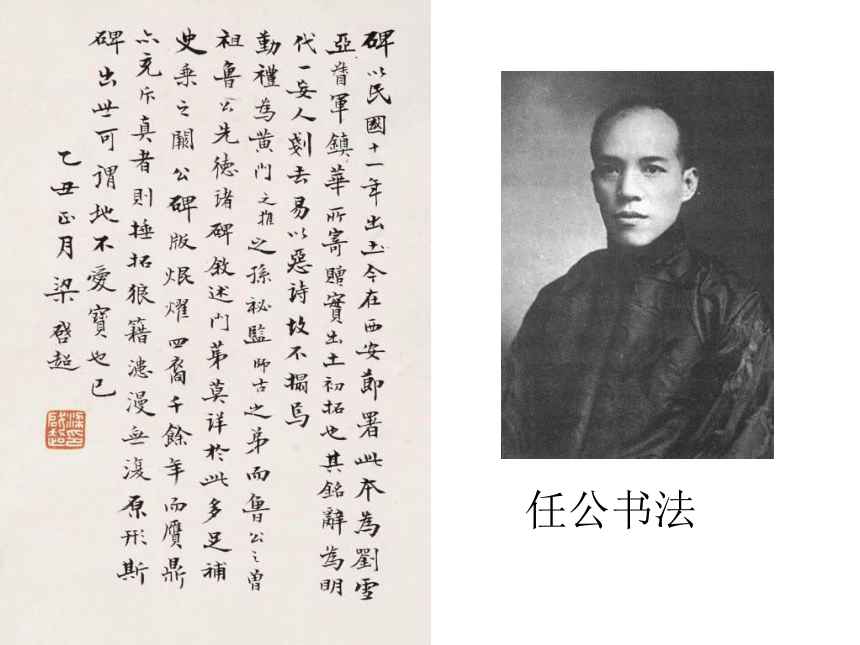 碑以民國十一年出土今在西安節署此本為劉雪
亞督軍鎮華所寄贈實出土初拓也其銘辭為明
代一妄人剗去易以惡詩故不搨焉
勤禮為黃門之推之孫祕監師古之弟而魯公之曾
祖魯公先德諸碑敘述門第莫詳於此多足補
史乘之闕公碑版炳燿四裔千餘年而贗鼎
亦充斥真者則捶拓狼籍漶漫無復原形斯
碑出世可謂地不愛寶也已
乙丑正月梁啓超
梁啟超印
任公书法